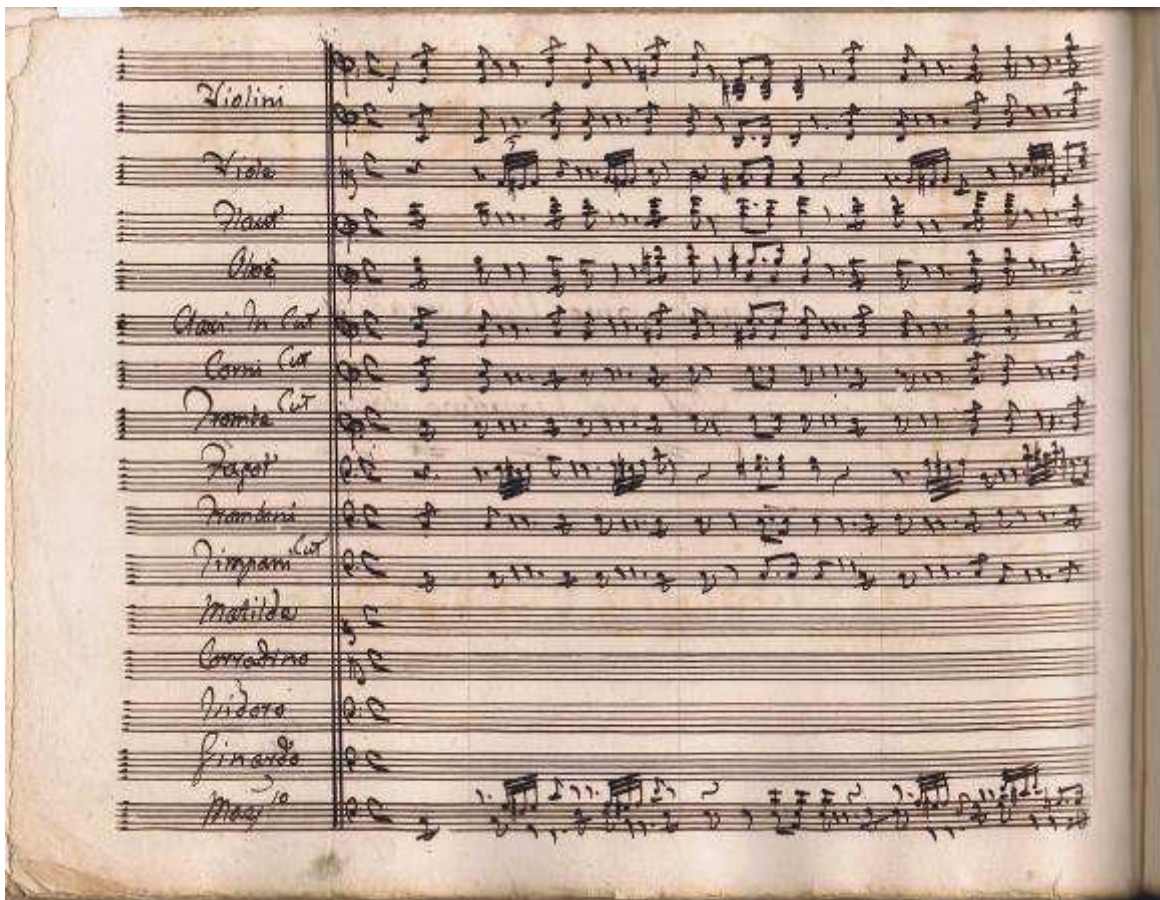 Violini
Viola
Flauti
Oboè
Clari: In Cut
Corni Cut
Trombe Cut
Fagot
Tromboni
Timpani Cut
Matilda
Corradino
Isidoro
Ginardo